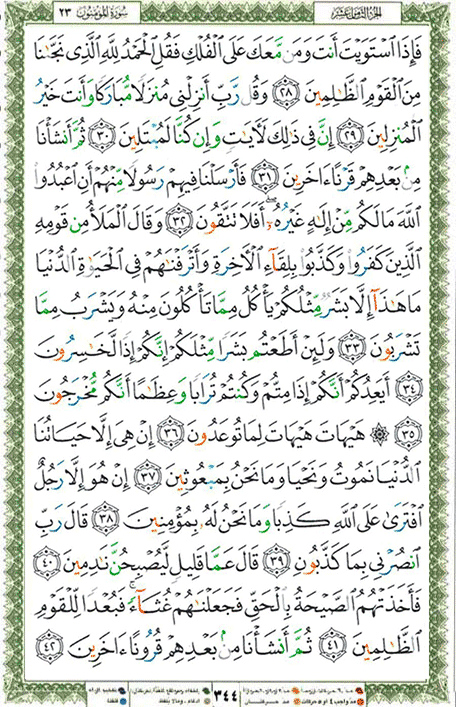 الجزء الثامن عشر سورة المؤمنون ٢٣
فَإِذَا ٱسْتَوَيْتَ أَنتَ وَمَن مَّعَكَ عَلَى ٱلْفُلْكِ فَقُلِ ٱلْحَمْدُ لِلَّهِ ٱلَّذِى نَجَّىٰنَا
مِنَ ٱلْقَوْمِ ٱلظَّٰلِمِينَ ٢٨ وَقُل رَّبِّ أَنزِلْنِى مُنزَلًا مُّبَارَكًا وَأَنتَ خَيْرُ
ٱلْمُنزِلِينَ ٢٩ إِنَّ فِى ذَٰلِكَ لَءَايَٰتٍ وَإِن كُنَّا لَمُبْتَلِينَ ٣٠ ثُمَّ أَنشَأْنَا
مِنۢ بَعْدِهِمْ قَرْنًا ءَاخَرِينَ ٣١ فَأَرْسَلْنَا فِيهِمْ رَسُولًا مِّنْهُمْ أَنِ ٱعْبُدُوا۟
ٱللَّهَ مَا لَكُم مِّنْ إِلَٰهٍ غَيْرُهُۥٓ ۖ أَفَلَا تَتَّقُونَ ٣٢ وَقَالَ ٱلْمَلَأُ مِن قَوْمِهِ
ٱلَّذِينَ كَفَرُوا۟ وَكَذَّبُوا۟ بِلِقَآءِ ٱلْءَاخِرَةِ وَأَتْرَفْنَٰهُمْ فِى ٱلْحَيَوٰةِ ٱلدُّنْيَا
مَا هَٰذَآ إِلَّا بَشَرٌ مِّثْلُكُمْ يَأْكُلُ مِمَّا تَأْكُلُونَ مِنْهُ وَيَشْرَبُ مِمَّا
تَشْرَبُونَ ٣٣ وَلَئِنْ أَطَعْتُم بَشَرًا مِّثْلَكُمْ إِنَّكُمْ إِذًا لَّخَٰسِرُونَ
٣٤ أَيَعِدُكُمْ أَنَّكُمْ إِذَا مِتُّمْ وَكُنتُمْ تُرَابًا وَعِظَٰمًا أَنَّكُم مُّخْرَجُونَ
٣٥ ۞ هَيْهَاتَ هَيْهَاتَ لِمَا تُوعَدُونَ ٣٦ إِنْ هِىَ إِلَّا حَيَاتُنَا
ٱلدُّنْيَا نَمُوتُ وَنَحْيَا وَمَا نَحْنُ بِمَبْعُوثِينَ ٣٧ إِنْ هُوَ إِلَّا رَجُلٌ
ٱفْتَرَىٰ عَلَى ٱللَّهِ كَذِبًا وَمَا نَحْنُ لَهُۥ بِمُؤْمِنِينَ ٣٨ قَالَ رَبِّ
ٱنصُرْنِى بِمَا كَذَّبُونِ ٣٩ قَالَ عَمَّا قَلِيلٍ لَّيُصْبِحُنَّ نَٰدِمِينَ ٤٠
فَأَخَذَتْهُمُ ٱلصَّيْحَةُ بِٱلْحَقِّ فَجَعَلْنَٰهُمْ غُثَآءً ۚ فَبُعْدًا لِّلْقَوْمِ
ٱلظَّٰلِمِينَ ٤١ ثُمَّ أَنشَأْنَا مِنۢ بَعْدِهِمْ قُرُونًا ءَاخَرِينَ ٤٢
٣٤٤